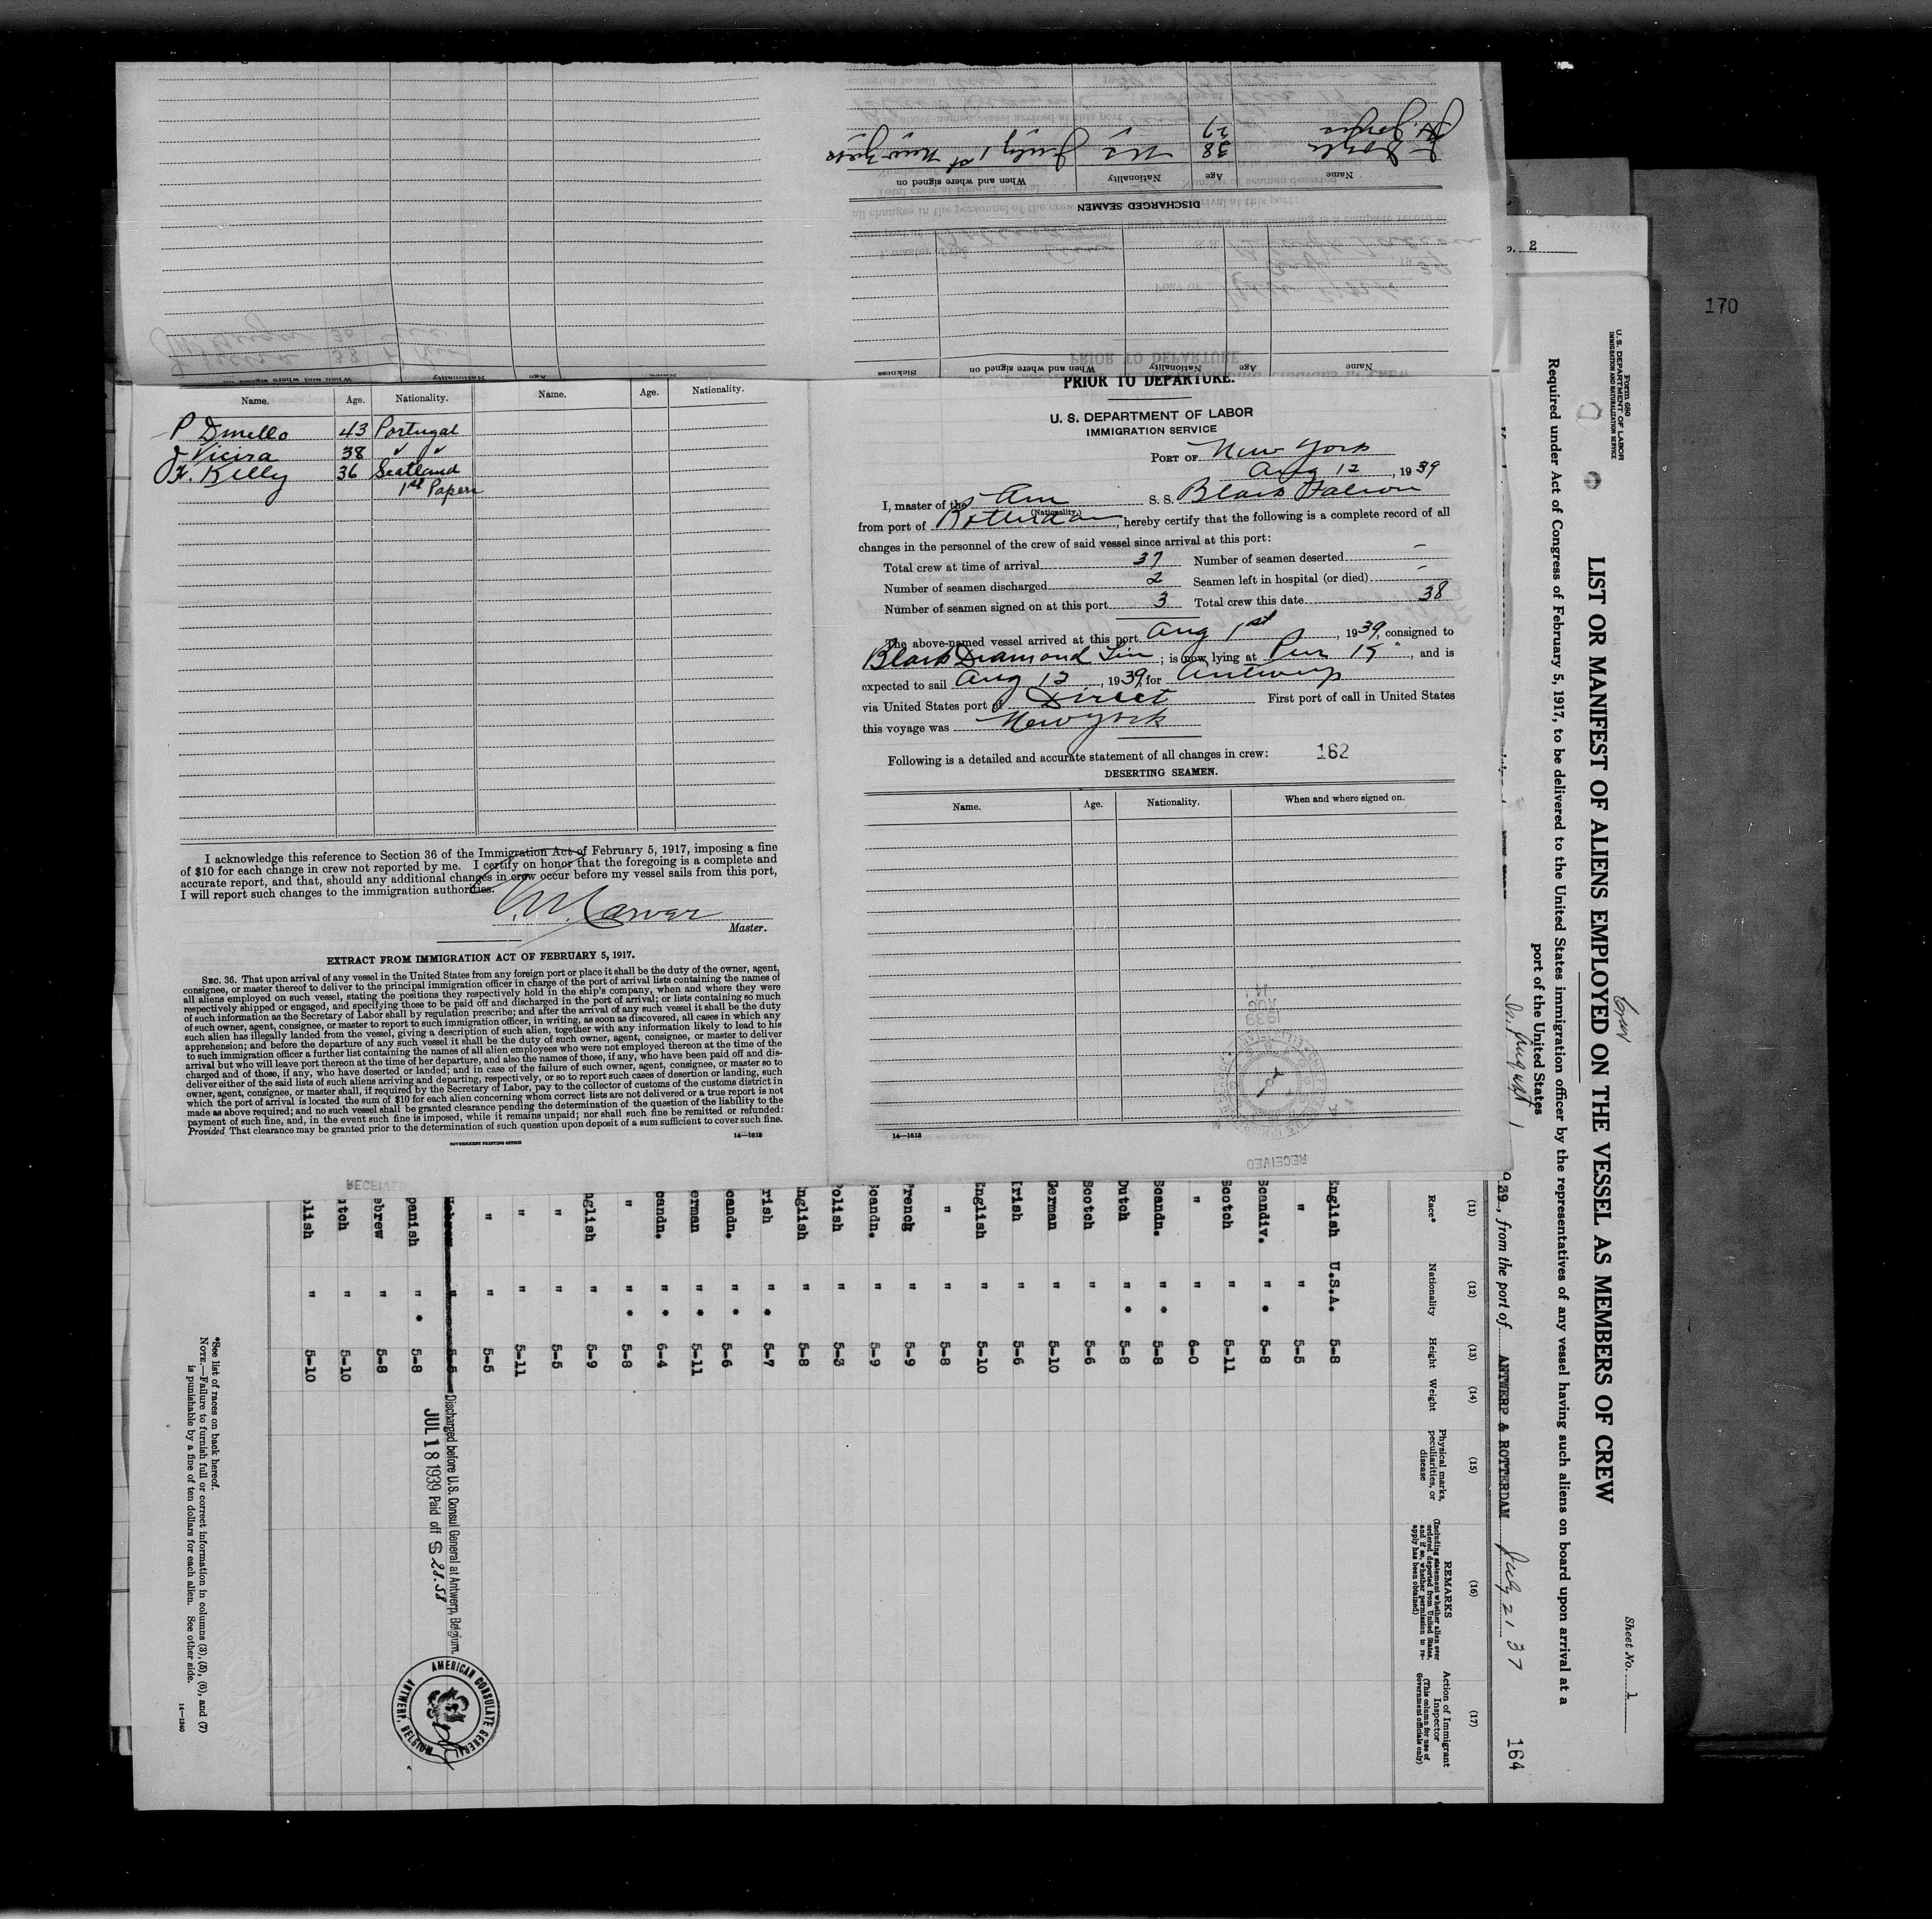 170
2
Name. Age. Nationality. Name. Age. Nationality.
P Dmello 43 Portugal
J Vieira 38 " "
F. Kelly 36 Scotland
1st Papers
I acknowledge this reference to Section 36 of the Immigration Act of February 5, 1917, imposing a fine
of $10 for each change in crew not reported by me. I certify on honor that the foregoing is a complete and
accurate report, and that, should any additional changes in crew occur before my vessel sails from this port,
I will report such changes to the immigration authorities.
Master.
EXTRACT FROM IMMIGRATION ACT OF FEBRUARY 5, 1917.
SEC. 36. That upon arrival of any vessel in the United States from any foreign port or place it shall be the duty of the owner, agent,
consignee, or master thereof to deliver to the principal immigration officer in charge of the port of arrival lists containing the names of
all aliens employed on such vessel, stating the positions they respectively hold in the ship's company, when and where they were
respectively shipped or engaged, and specifying those to be paid off and discharged in the port of arrival; or lists containing so much
of such information as the Secretary of Labor shall by regulation prescribe; and after the arrival of any such vessel it shall be the duty
of such owner, agent, consignee, or master to report to such immigration officer, in writing, as soon as discovered, all cases in which any
such alien has illegally landed from the vessel, giving a description of such alien, together with any information likely to lead to his
apprehension; and before the departure of any such vessel it shall be the duty of such owner, agent, consignee, or master to deliver
to such immigration officer a further list containing the names of all alien employees who were not employed thereon at the time of the
arrival but who will leave port thereon at the time of her departure, and also the names of those, if any, who have been paid off and dis-
charged and of those, if any, who have deserted or landed; and in case of the failure of such owner, agent, consignee, or master so to
deliver either of the said lists of such aliens arriving and departing, respectively, or so to report such cases of desertion or landing, such
owner, agent, consignee, or master shall, if required by the Secretary of Labor, pay to the collector of customs of the customs district in
which the port of arrival is located the sum of $10 for each alien concerning whom correct lists are not delivered or a true report is not
made as above required; and no such vessel shall be granted clearance pending the determination of the question of the liability to the
payment of such fine, and, in the event such fine is imposed, while it remains unpaid; nor shall such fine be remitted or refunded:
Provided, That clearance may be granted prior to the determination of such question upon deposit of a sum sufficient to cover such fine.
GOVERNMENT PRINTING OFFICE 14—1613
DISCHARGED SEAMEN
Name Age Nationality When and where signed on
Doyle 38 US July 1st New York
27 " " "
Name Age Nationality When and where signed on Sickness
PRIOR TO DEPARTURE.
U. S. DEPARTMENT OF LABOR
IMMIGRATION SERVICE
PORT OF New York
Aug 12, 1939
I, master of the Am S. S. Black Falcon
(Nationality.)
from port of Rotterdam, hereby certify that the following is a complete record of all
changes in the personnel of the crew of said vessel since arrival at this port:
Total crew at time of arrival 37 Number of seamen deserted –
Number of seamen discharged 2 Seamen left in hospital (or died) –
Number of seamen signed on at this port 3 Total crew this date 38
The above-named vessel arrived at this port Aug 1st, 1939, consigned to
Black Diamond Line; is now lying at Pier K, and is
expected to sail Aug 12, 1939, for Antwerp
via United States port of Direct First port of call in United States
this voyage was New York
Following is a detailed and accurate statement of all changes in crew: 162
DESERTING SEAMEN.
Name. Age. Nationality. When and where signed on.
1939
AUG
14
14—1613
RECEIVED
RECEIVED
Form 680
U. S. DEPARTMENT OF LABOR
IMMIGRATION AND NATURALIZATION SERVICE
Sheet No. 1
LIST OR MANIFEST OF ALIENS EMPLOYED ON THE VESSEL AS MEMBERS OF CREW
Required under Act of Congress of February 5, 1917, to be delivered to the United States immigration officer by the representatives of any vessel having such aliens on board upon arrival at a
port of the United States
August 1
39, from the port of ANTWERP & ROTTERDAM July 21 37
164
(11) (12) (13) (14) (15) (16) (17)
Race* Nationality Height Weight Physical marks, peculiarities, or disease REMARKS (Including statement whether alien ever ordered deported from United States, and if so, whether permission to re-apply has been obtained) Action of Immigrant Inspector (This column for use of Government officials only)
English U.S.A. 5-8
" " 5-5
Scandiv. " * 5-8
Scotch " 5-11
" " 6-0
Scandn. " * 5-8
Dutch " * 5-8
Scotch " 5-6
German " 5-10
Irish " 5-6
English " 5-10
" " 5-8
French " 5-9
Scandn. " 5-9
Polish " 5-3
English " 5-8
rish " * 5-7
candn. " * 5-6
erman " * 5-11
candn. " * 6-4
" " * 5-8
nglish " 5-9
" " 5-5
" " 5-11
" " 5-5
Hebrew " 5-5 Discharged before U.S. Consul General at Antwerp, Belgium.
JUL 18 1939 Paid off $ 28.58
panish " * 5-8
ebrew " 5-8
utch " 5-10
olish " 5-10
AMERICAN CONSULATE GENERAL
ANTWERP, BELGIUM
*See list of races on back hereof.
NOTE.—Failure to furnish full or correct information in columns (3), (5), (6), and (7)
is punishable by a fine of ten dollars for each alien. See other side.
14—1240